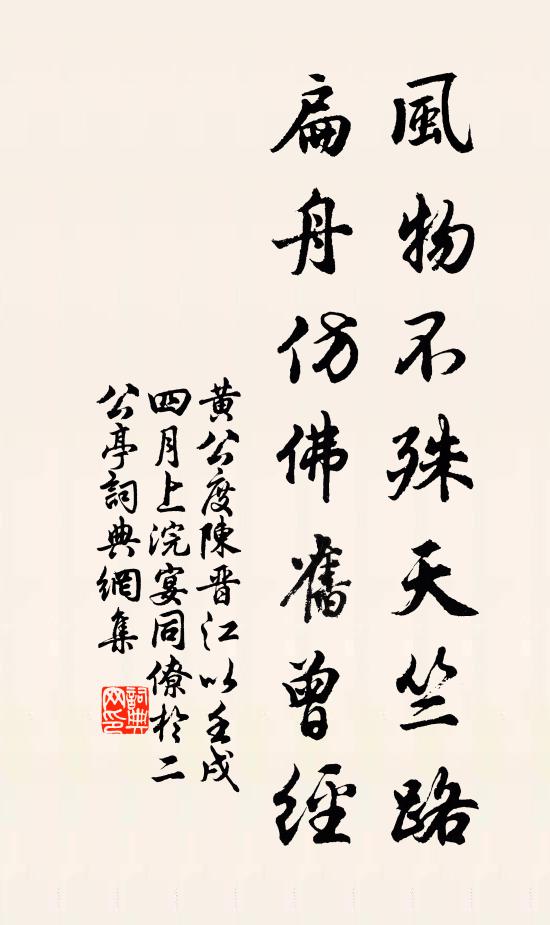 風物不殊天竺路
扁舟仿佛舊曾經
黄公度陳晋江以壬戌
四月上浣宴同僚於二
公亭詞典網集
詞典
网印